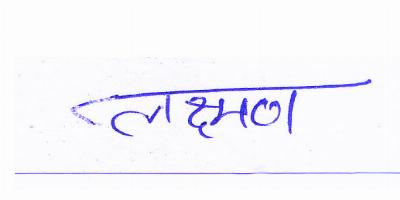 लक्ष्मण